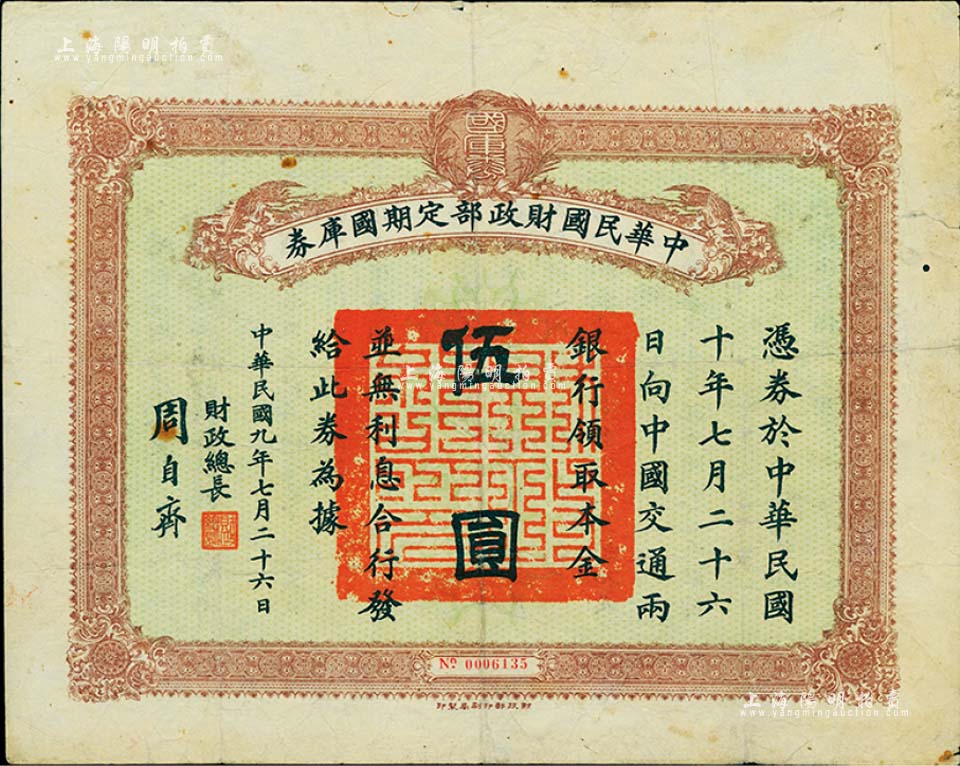 上海陽明拍賣
www.yangmingauction.com
國庫券
中華民國財政部定期國庫券
憑券於中華民國
十年七月二十六
日向中國交通兩
銀行領取本金
伍圓
並無利息合行發
給此券為據
中華民國九年七月二十六日
財政總長
周自齊
上海陽明拍賣
www.yangmingauction.com
No 0006135
財政部印刷局製印
上海陽明拍賣
www.yangmingauction.com